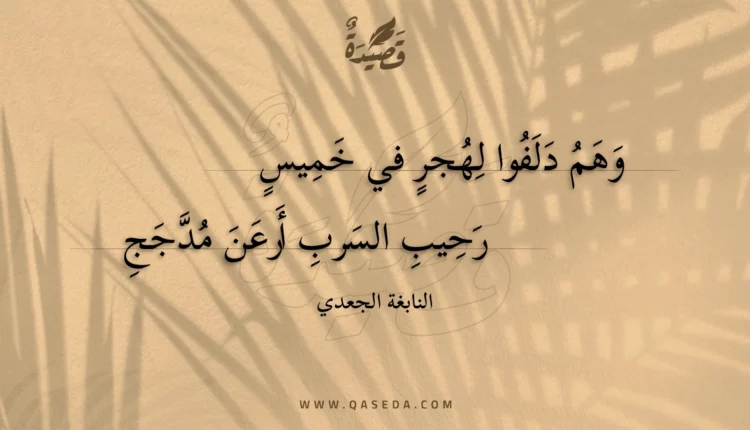 قَصِيدَةٌ
وَهَمُ دَلَفُوا لِهُجرٍ في خَمِيسٍ
رَحِيبِ السَربِ أَرعَنَ مُدَّجَجِ
النابغة الجعدي
WWW.QASEDA.COM